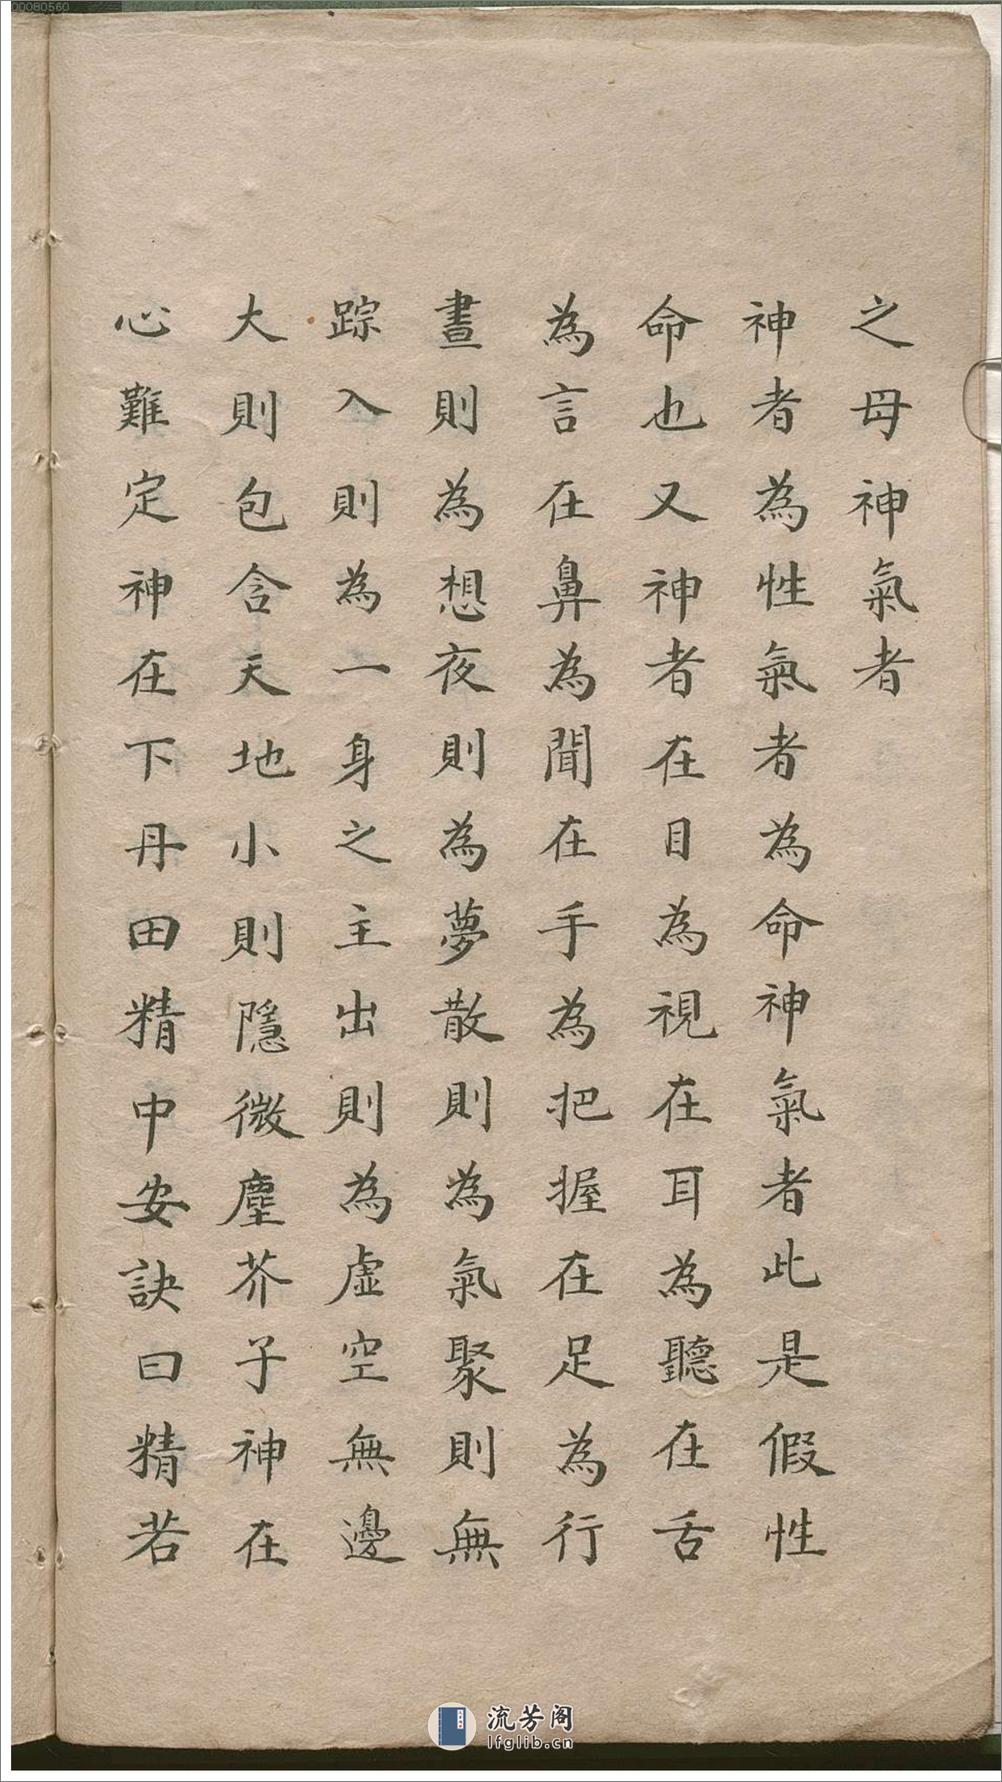 00080560
之母神氣者
神者為性氣者為命神神氣者此是假性
命也又神者在目為視在耳為聽在舌
為言在鼻為聞在手為把握在足為行
晝則為想夜則為夢散則為氣聚則無
踪入則為一身之主出則為虛空無邊
大則包含天地小則隱微塵芥子神在
心難定神在下丹田精中安訣曰精若
流芳阁
lfglib.cn